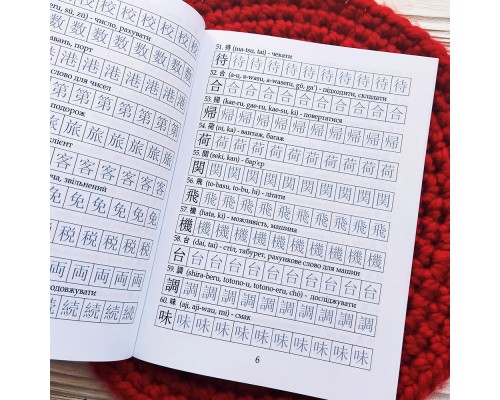 eru, sū, zu) - число, рахувати
校校校
數數數數
авань, порт
港港港
слово для чисел
第第第第
подорож
旅旅旅旅
клієнт
客客客客客
ча, звільнений
免免免免
税税税税
両両両両
одовжувати
続続続続
51. 待 (ma-tsu, tai) - чекати
待待待待待待待待待待
52. 合 (a-u, a-wasu, a-waseru, gō, ga') - підходити, складати
合合合合合合合合合合
53. 帰 (kae-ru, gae-ru, kae-su, ki) - повертатися
帰帰帰帰帰帰帰帰帰帰
54. 荷 (ni, ka) - вантаж, багаж
荷荷荷荷荷荷荷荷荷荷
55. 関 (seki, kan) - бар'єр
関関関関関関関関関関
56. 飛 (to-basu, to-bu, hi) - літати
飛飛飛飛飛飛飛飛飛飛
57. 機 (hata, ki) - можливість, машина
機機機機機機機機機機
58. 台 (dai, tai) - стіл, табурет, рахункове слово для машин
台台台台台台台台台台
59. 調 (shira-beru, totono-u, totono-eru, chō) - досліджувати
調調調調調調調調調調
60. 味 (aji, aji-wau, mi) - смак
味味味味味味味味味味
6